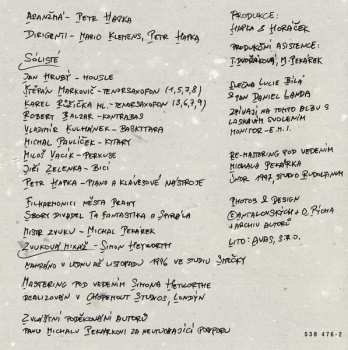 ARANŽMÁ - PETR HAPKA
DIRIGENTI - MARIO KLEMENS, PETR HAPKA
SÓLISTÉ
JAN HRUBÝ - HOUSLE
ŠTĚPÁN MARKOVIČ - TENORSAXOFON (1,5,7,8)
KAREL RŮŽIČKA ML. - TENORSAXOFON (3,6,7,9)
ROBERT BALZAR - KONTRABAS
VLADIMÍR KULHÁNEK - BASKYTARA
MICHAL PAVLÍČEK - KYTARY
MILOŠ VACÍK - PERKUSE
JIŘÍ ZELENKA - BICÍ
PETR HAPKA - PIANO A KLÁVESOVÉ NÁSTROJE
FILHARMONICI MĚSTA PRAHY
SBORY DIVADEL TA FANTASTIKA A SPIRÁLA
MISTR ZVUKU - MICHAL PEKÁREK
ZVUKOVÁ MIXÁŽ - SIMON HEYWORTH
NAHRÁNO V LEDNU AŽ LISTOPADU 1996 VE STUDIU SMEČKY
MASTERING POD VEDENÍM SIMONA HEYWORTHE
REALIZOVÁN V CHOPEMOUT STUDIOS, LONDÝN
ZVLÁŠTNÍ PODĚKOVÁNÍ AUTORŮ
PANU MICHALU PEKÁRKOVI ZA NEUTUCHAJÍCÍ PODPORU
PRODUKCE:
HAPKA & HORÁČEK
PRODUKČNÍ ASISTENCE:
I. DVOŘÁKOVÁ, M. PEKÁREK
SLEČNA LUCIE BÍLÁ
& PAN DANIEL LANDA
ZPÍVAJÍ NA TOMTO ALBU S
LASKAVÝM SVOLENÍM
MONITOR - E.M.I.
RE-MASTERING POD VEDENÍM
MICHALA PEKÁRKA
ÚNOR 1997, STUDIO RUDOLFINUM
PHOTOS & DESIGN
& ARCHIV AUTORŮ
LITO: AVAS, S.R.O.
538 476-2